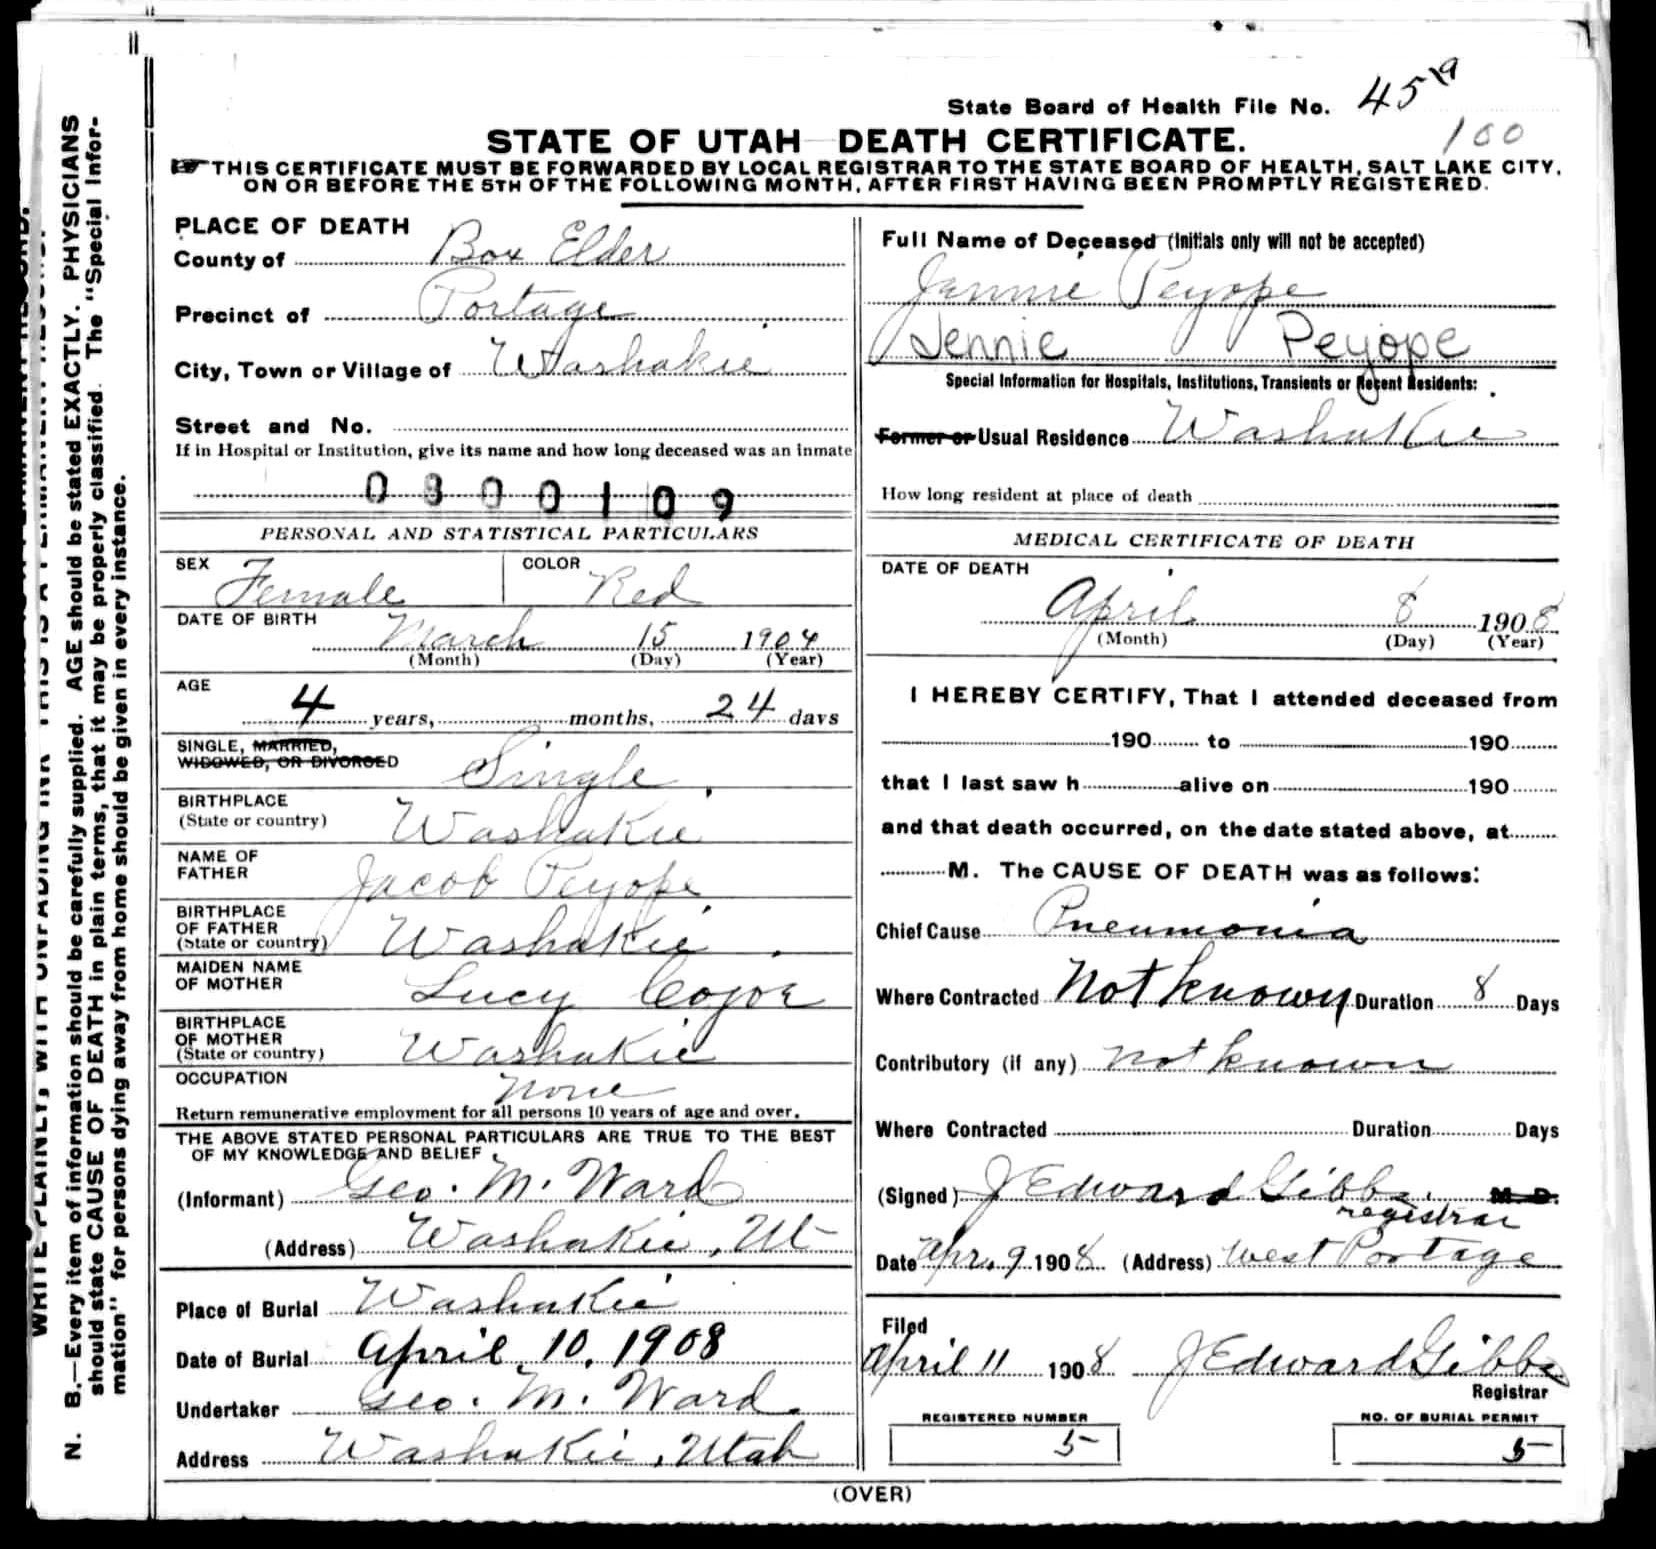 State Board of Health File No. 45 19
100
STATE OF UTAH DEATH CERTIFICATE.
THIS CERTIFICATE MUST BE FORWARDED BY LOCAL REGISTRAR TO THE STATE BOARD OF HEALTH, SALT LAKE CITY,
ON OR BEFORE THE 5TH OF THE FOLLOWING MONTH, AFTER FIRST HAVING BEEN PROMPTLY REGISTERED.
N. B.—Every item of information should be carefully supplied. AGE should be stated EXACTLY. PHYSICIANS
should state CAUSE OF DEATH in plain terms, that it may be properly classified. The "Special Infor-
mation" for persons dying away from home should be given in every instance.
PLACE OF DEATH
County of Box Elder
Precinct of Portage
City, Town or Village of Washakie
Street and No.
If in Hospital or Institution, give its name and how long deceased was an inmate
0800109
PERSONAL AND STATISTICAL PARTICULARS
SEX Female COLOR Red
DATE OF BIRTH March 15 1904
(Month) (Day) (Year)
AGE
4 years, months, 24 days
SINGLE, MARRIED,
WIDOWED, OR DIVORCED Single
BIRTHPLACE
(State or country) Washakie
NAME OF
FATHER Jacob Peyope
BIRTHPLACE
OF FATHER
(State or country) Washakie
MAIDEN NAME
OF MOTHER Lucy
BIRTHPLACE
OF MOTHER
(State or country) Washakie
OCCUPATION None
Return remunerative employment for all persons 10 years of age and over.
THE ABOVE STATED PERSONAL PARTICULARS ARE TRUE TO THE BEST
OF MY KNOWLEDGE AND BELIEF
(Informant) Geo. M. Ward
(Address) Washakie, Ut
Place of Burial Washakie
Date of Burial April 10, 1908
Undertaker Geo. M. Ward
Address Washakie, Utah
Full Name of Deceased (Initials only will not be accepted)
Jennie Peyope
Jennie Peyope
Special Information for Hospitals, Institutions, Transients or Recent Residents:
Former or Usual Residence Washakie
How long resident at place of death
MEDICAL CERTIFICATE OF DEATH
DATE OF DEATH
April 8 1908
(Month) (Day) (Year)
I HEREBY CERTIFY, That I attended deceased from
190 to 190
that I last saw h alive on 190
and that death occurred, on the date stated above, at
M. The CAUSE OF DEATH was as follows:
Chief Cause Pneumonia
Where Contracted Not known Duration 8 Days
Contributory (if any) not known
Where Contracted Duration Days
(Signed) J Edward Gibbs. M. D.
registrar
Date Apr. 9 1908 (Address) West Portage
Filed
April 11 1908 J Edward Gibbs
Registrar
REGISTERED NUMBER
5
NO. OF BURIAL PERMIT
5
(OVER)